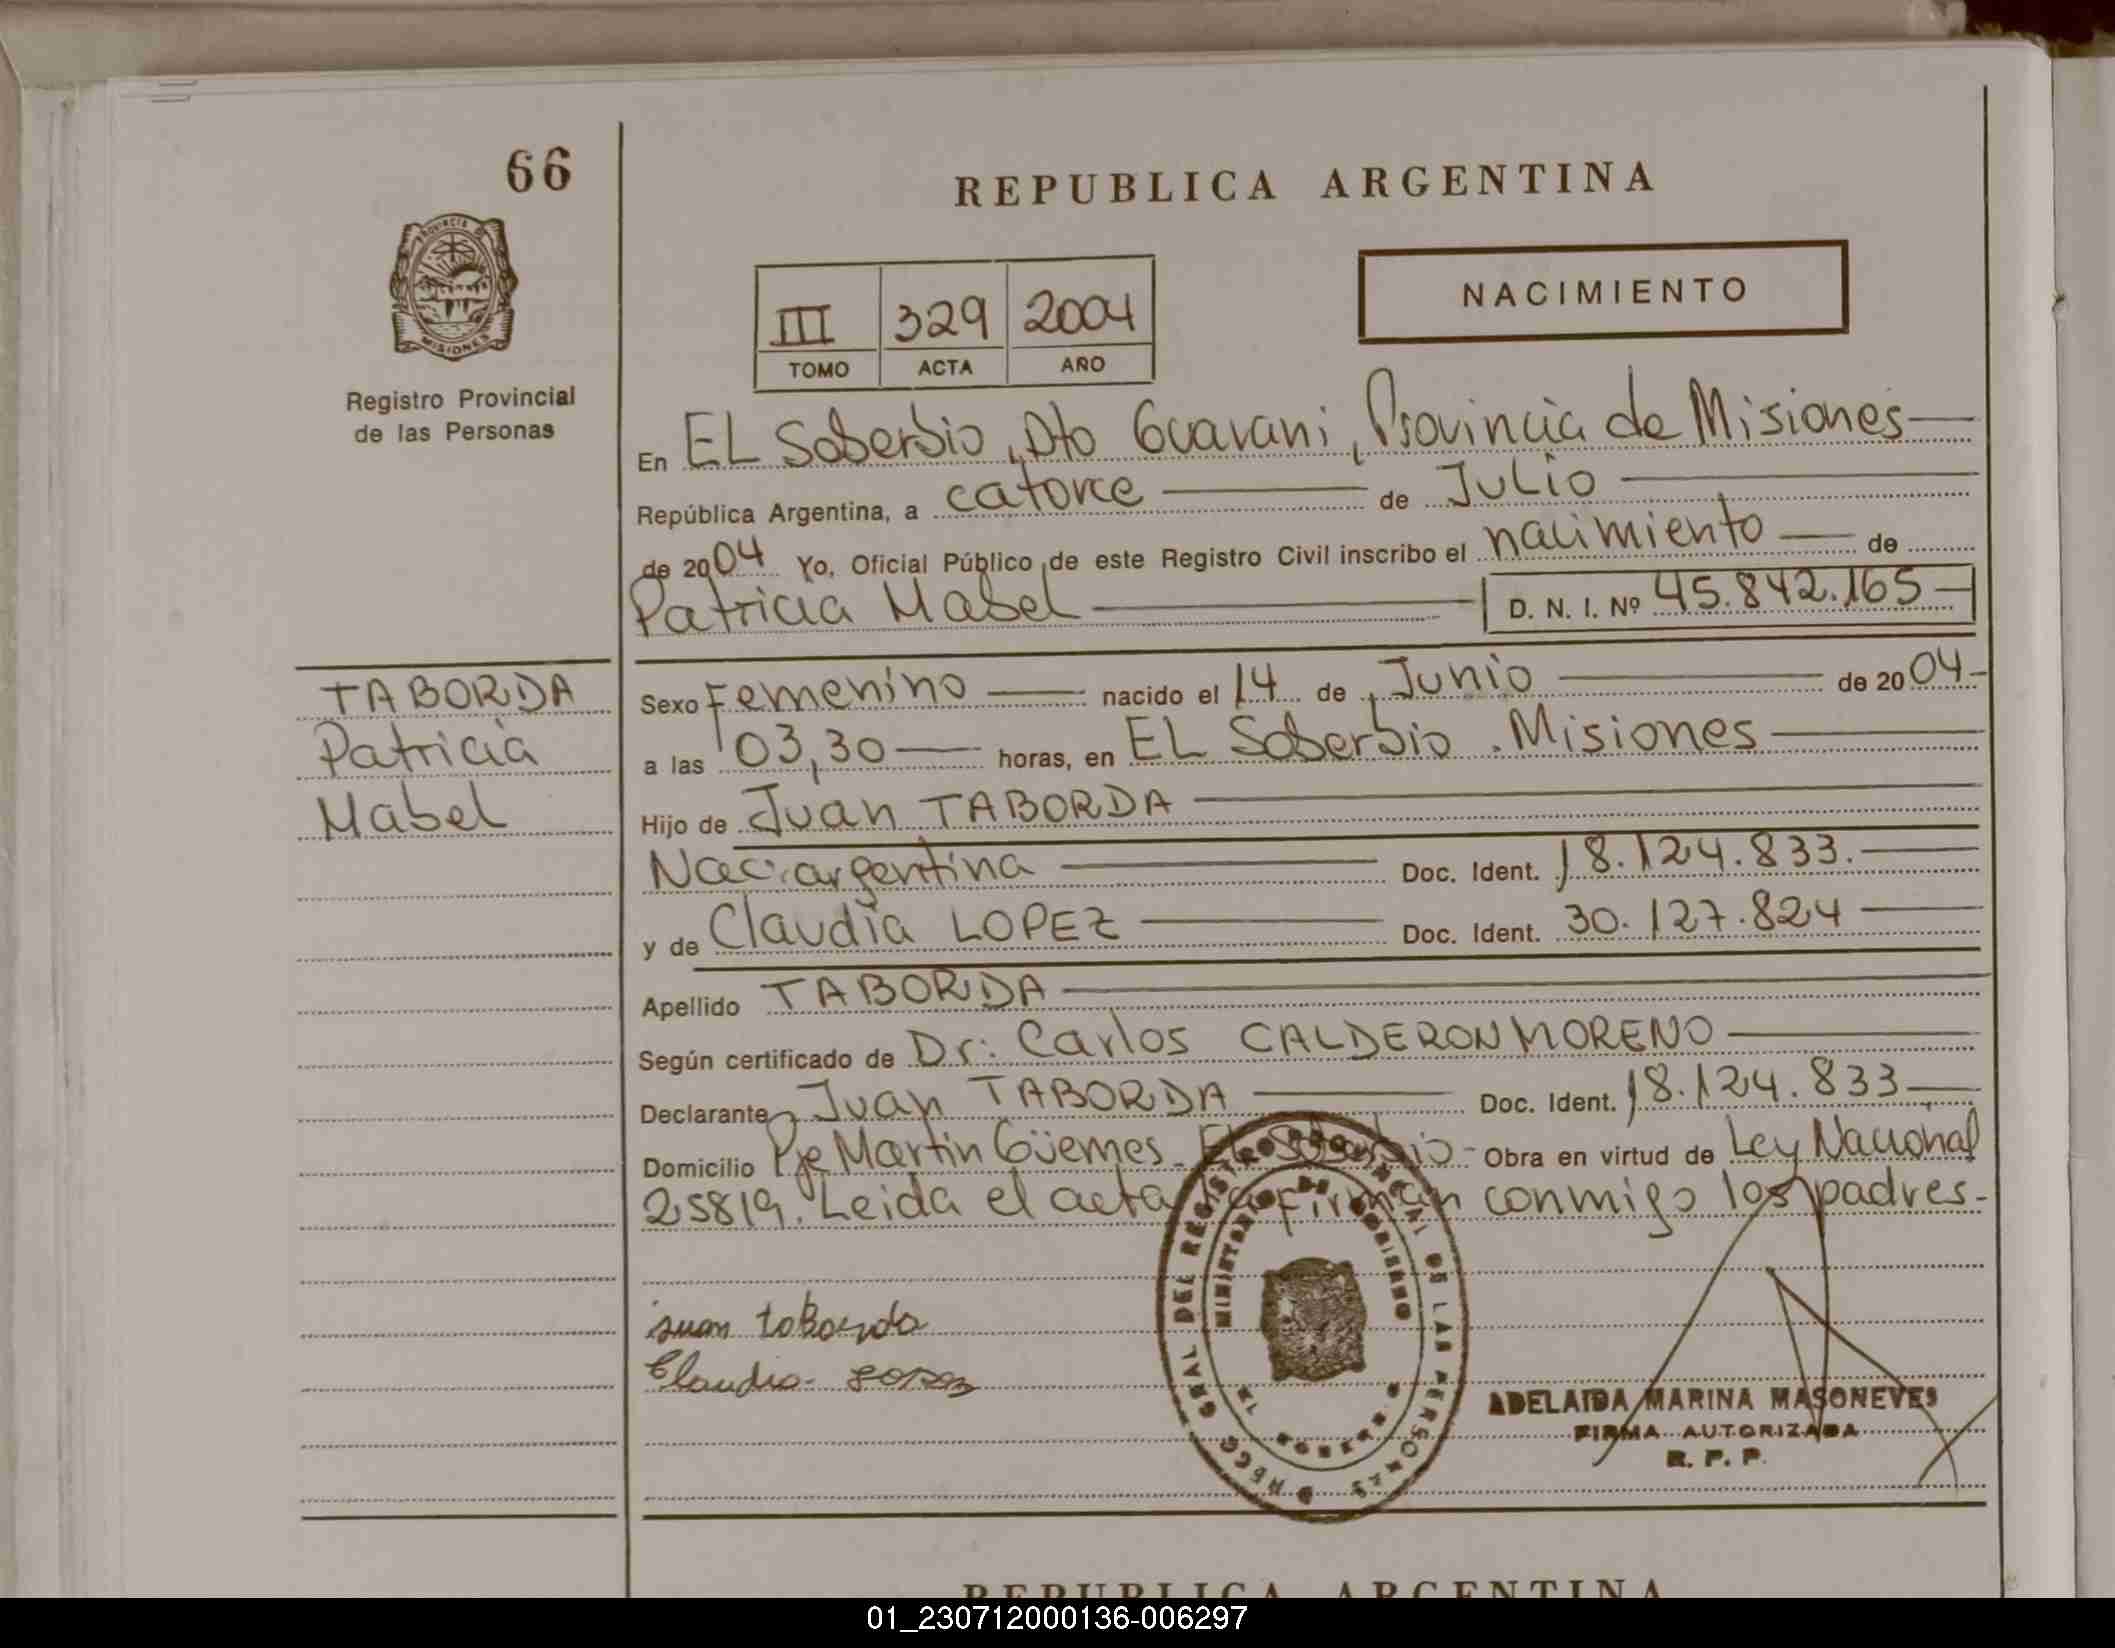 66
REPUBLICA ARGENTINA
PROVINCIA DE
MISIONES
Registro Provincial
de las Personas
III 329 2004
TOMO ACTA AÑO
NACIMIENTO
En EL Soberbio, Dto Guarani, Provincia de Misiones
República Argentina, a catorce de Julio
de 2004 Yo, Oficial Público de este Registro Civil inscribo el nacimiento de
Patricia Mabel D. N. I. Nº 45.842.165
TABORDA
Patricia
Mabel
Sexo Femenino nacido el 14 de Junio de 2004
a las 03,30 horas, en EL Soberbio. Misiones
Hijo de Juan TABORDA
Nac: argentina Doc. Ident. 18.124.833.
y de Claudia LOPEZ Doc. Ident. 30.127.824
Apellido TABORDA
Según certificado de Dr: Carlos CALDERON MORENO
Declarante Juan TABORDA Doc. Ident. 18.124.833
Domicilio Pje Martin Güemes - El Soberbio - Obra en virtud de Ley Nacional
25819. Leida el acta la firman conmigo los padres.
juan taborda
Claudia Lopez
GRAL DEL REGISTRO PROVINCIAL DE LAS PERSONAS
MINISTERIO DE GOBIERNO
ADELAIDA MARINA MASONEVES
FIRMA AUTORIZADA
R. P. P.
REPUBLICA ARGENTINA
01_230712000136-006297